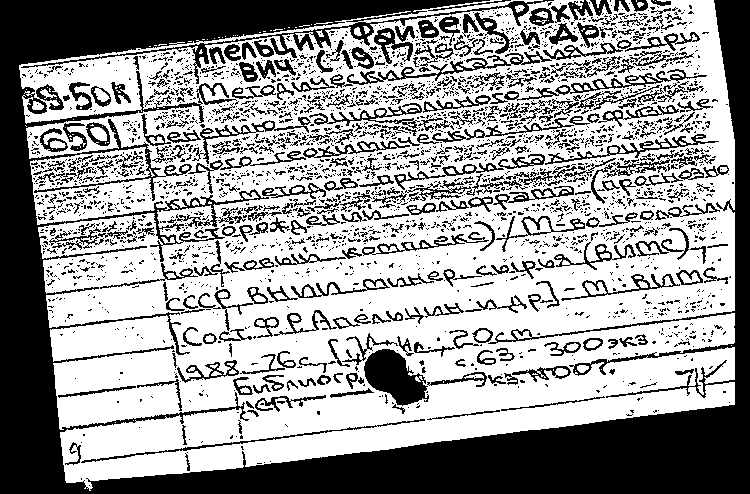 Апельцин, Файвель Рахмилье-
вич (1917 ) и др.
89-50к
Методические указания по при-
6501
менению рационального комплекса
геолого-геохимических и геофизиче-
ских методов при поисках и оценке
месторождений вольфрама (прогнозно
поисковый комплекс) / М-во геологии
СССР, ВНИИ минер. сырья (ВИМС);
[Сост. Ф.Р. Апельцин и др.] - М.: ВИМС,
1988. - 76 с., ил.; 20 см.
Библиогр. с. 63. - 300 экз.
ДСП. Экз. N 007.
9